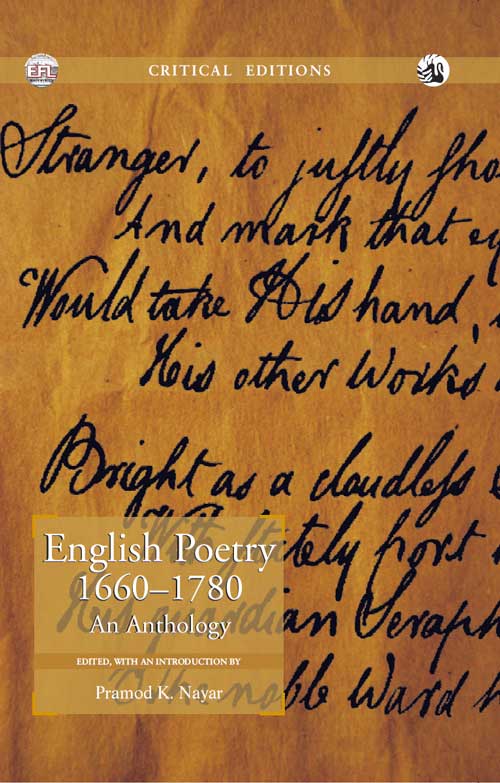 EFL
CRITICAL EDITIONS
Stranger, to justly sho
And mark that ey
Would take His hand,
His other Works
Bright as a cloudless
With stately port
His guardian Seraph
O'er the noble Ward
English Poetry
1660–1780
An Anthology
EDITED, WITH AN INTRODUCTION BY
Pramod K. Nayar